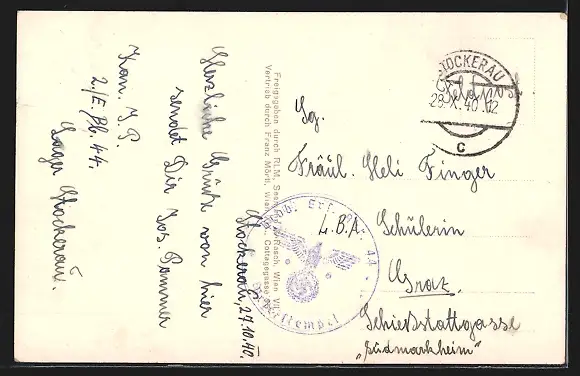 Stockerau, 27.10.40.
Herzliche Grüße von hier
sendet Dir Jos. Pommer
Kan. J. P.
2./E. Ab. 44.
Lager Stockerau.
Freigegeben durch RLM,
Vertrieb durch Franz Mörtl, Wien
STOCKERAU
28.X.40.12
c
Sg.
Fräul. Heli Finger
L.B.A. Schülerin
Graz.
Schießstattgasse
„Südmarkheim"
44